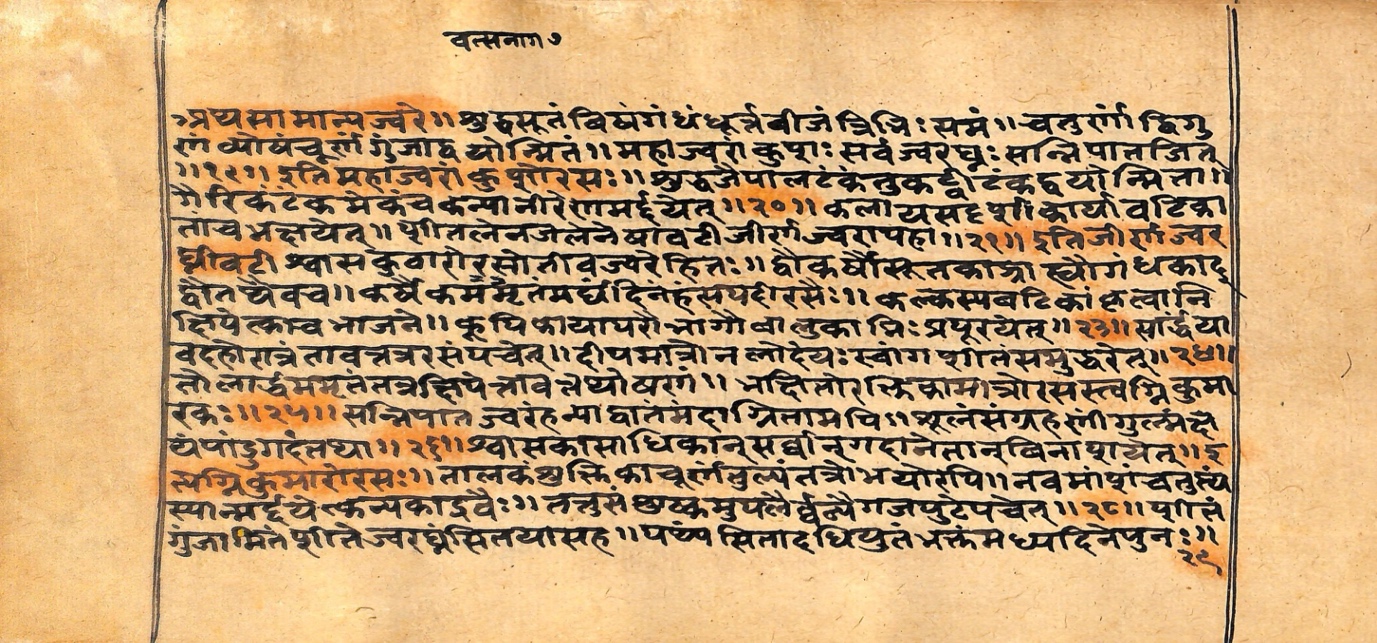 वत्सनाग७
अथसामान्यज्वरे॥शुद्धसूतंविषंगंधंधूर्त्तबीजंत्रिभिःसमं॥चतुर्णांद्विगु
णंव्योषंचूर्णंगुंजाद्वयोन्मितं॥महाज्वरांकुशः सर्वज्वरघ्नः सन्निपातजित्
॥१९॥इतिमहाज्वरांकुशोरसः॥शुद्धजैपालटंकंतुकर्ष्वीटंकद्वयोन्मिता॥
गैरिकंटंकमेकंचकन्यानीरेणमर्द्दयेत्॥२०॥कलायसदृशीकार्यावटिका
तांचभक्षयेत्॥शीतलेनजलेनैषावटीजीर्णज्वरापहा॥२१॥इतिजीर्णज्वर
घ्नीवटी श्वासकुठारोरसोतीवज्वरेहितः॥द्वौकर्षौसूतकाज्ञाह्यौगंधकाद्
द्वौतथैवच॥कर्षैकममृतमर्घंदिनंहंसपदीरसैः॥कल्कस्यवटिकांकृत्वानि
क्षिपेत्काचभाजने॥कूपिकायापरौभागौवालुकाभिःप्रपूरयेत्॥२३॥सार्द्धया
वदहोरात्रंतावत्तत्ररसंपचेत्॥दीपमात्रोनलोदेयःस्वांगशीतंसमुद्धरेत्॥२४॥
तोलार्द्धममृतंतत्रक्षिपेत्तावत्तथोषणं॥भक्षितोरक्तिकामात्रोरसस्त्वग्निकुमा
रकः॥२५॥सन्निपातज्वरंहन्याद्वातंमंदाग्नितामपि॥शूलंसंग्रहणींगुल्मंक्षै
यंपांडुगदंतथा॥२६॥श्वासकासाधिकान्सर्व्वान्गदानेतान्विनाशयेत्॥इ
त्यग्निकुमारोरसः॥तालकंशुक्तिकाचूर्णंतुल्यंतत्रोभयोरपि॥नवमांशंचतुत्थं
स्यान्मर्द्दयेत्कन्यकाद्रवैः॥तत्तुसंशुष्कमुपलैर्व्वन्यैगजपुटेपचेत्॥२८॥शीतं
गुंजामितंशीतज्वरघ्नंसितयासह॥पथ्यंसितादधियुतंभक्तंमध्यदिनेपुनः॥
२९